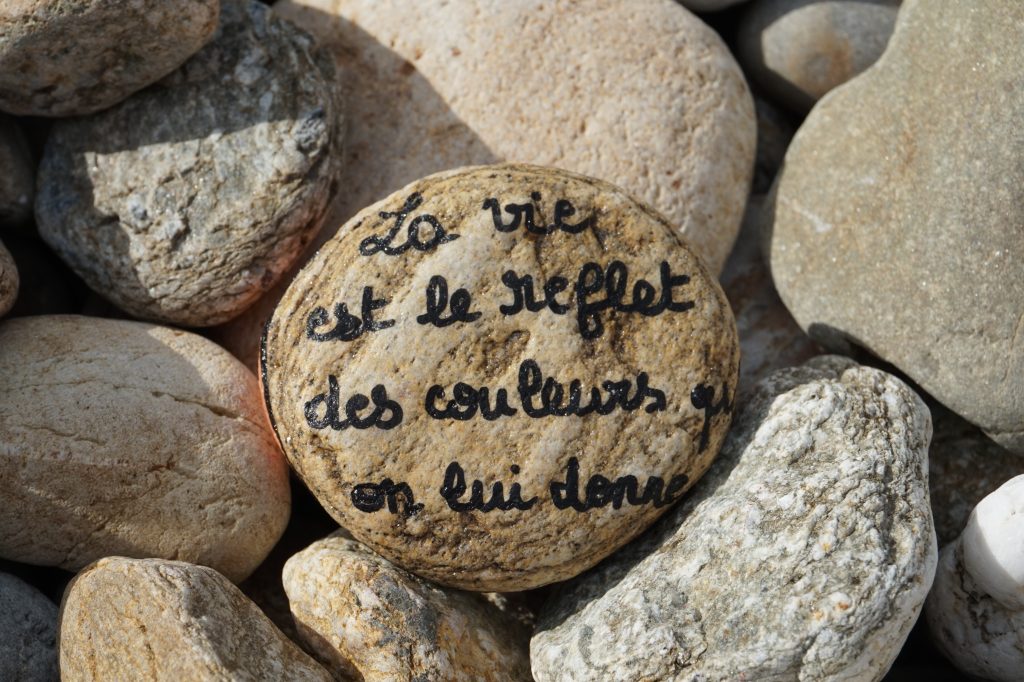 La vie
est le reflet
des couleurs qu
on lui donne